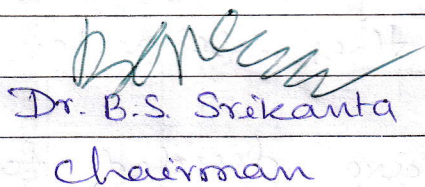 Dr. B.S. Srikanta
Chairman